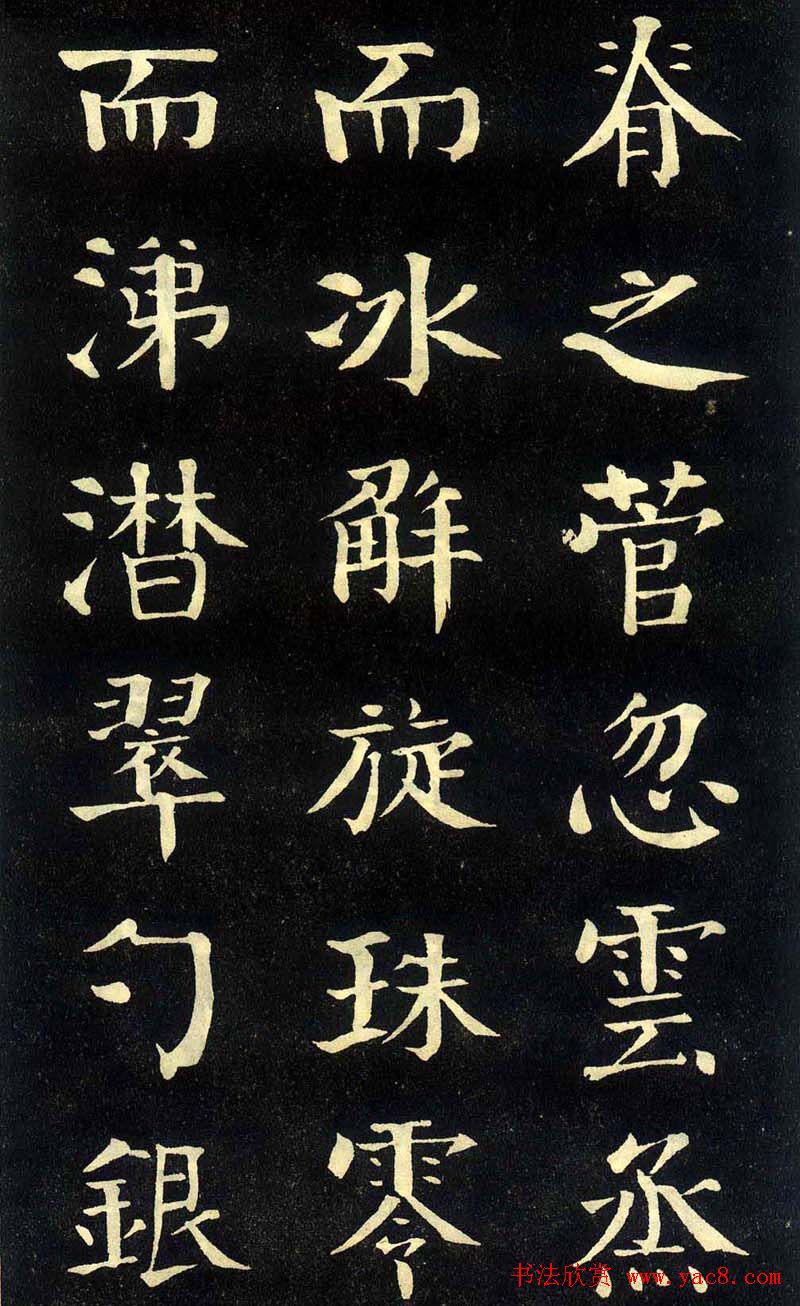 脊之菅忽雲烝
而冰觧旋珠零
而涕潸翠勺銀
书法欣赏 www.yac8.com